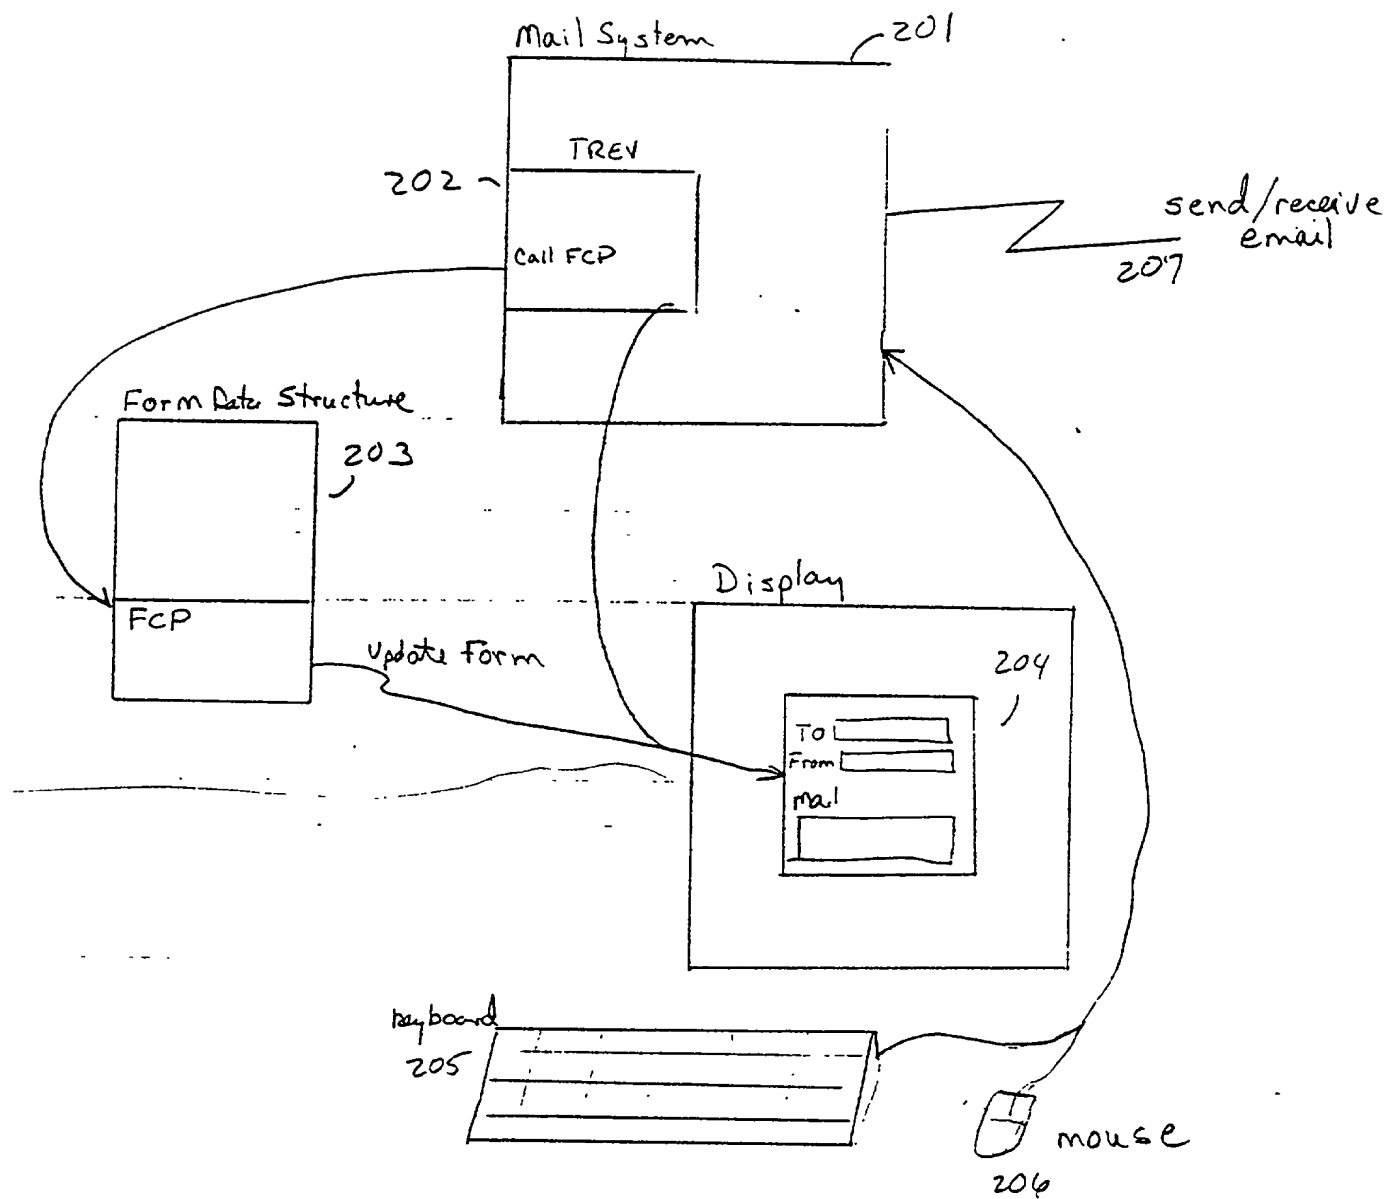 Mail System
201
TREV
202
Call FCP
send/receive
email
207
Form Data Structure
203
FCP
Update Form
Display
204
To
From
Mail
keyboard
205
mouse
206